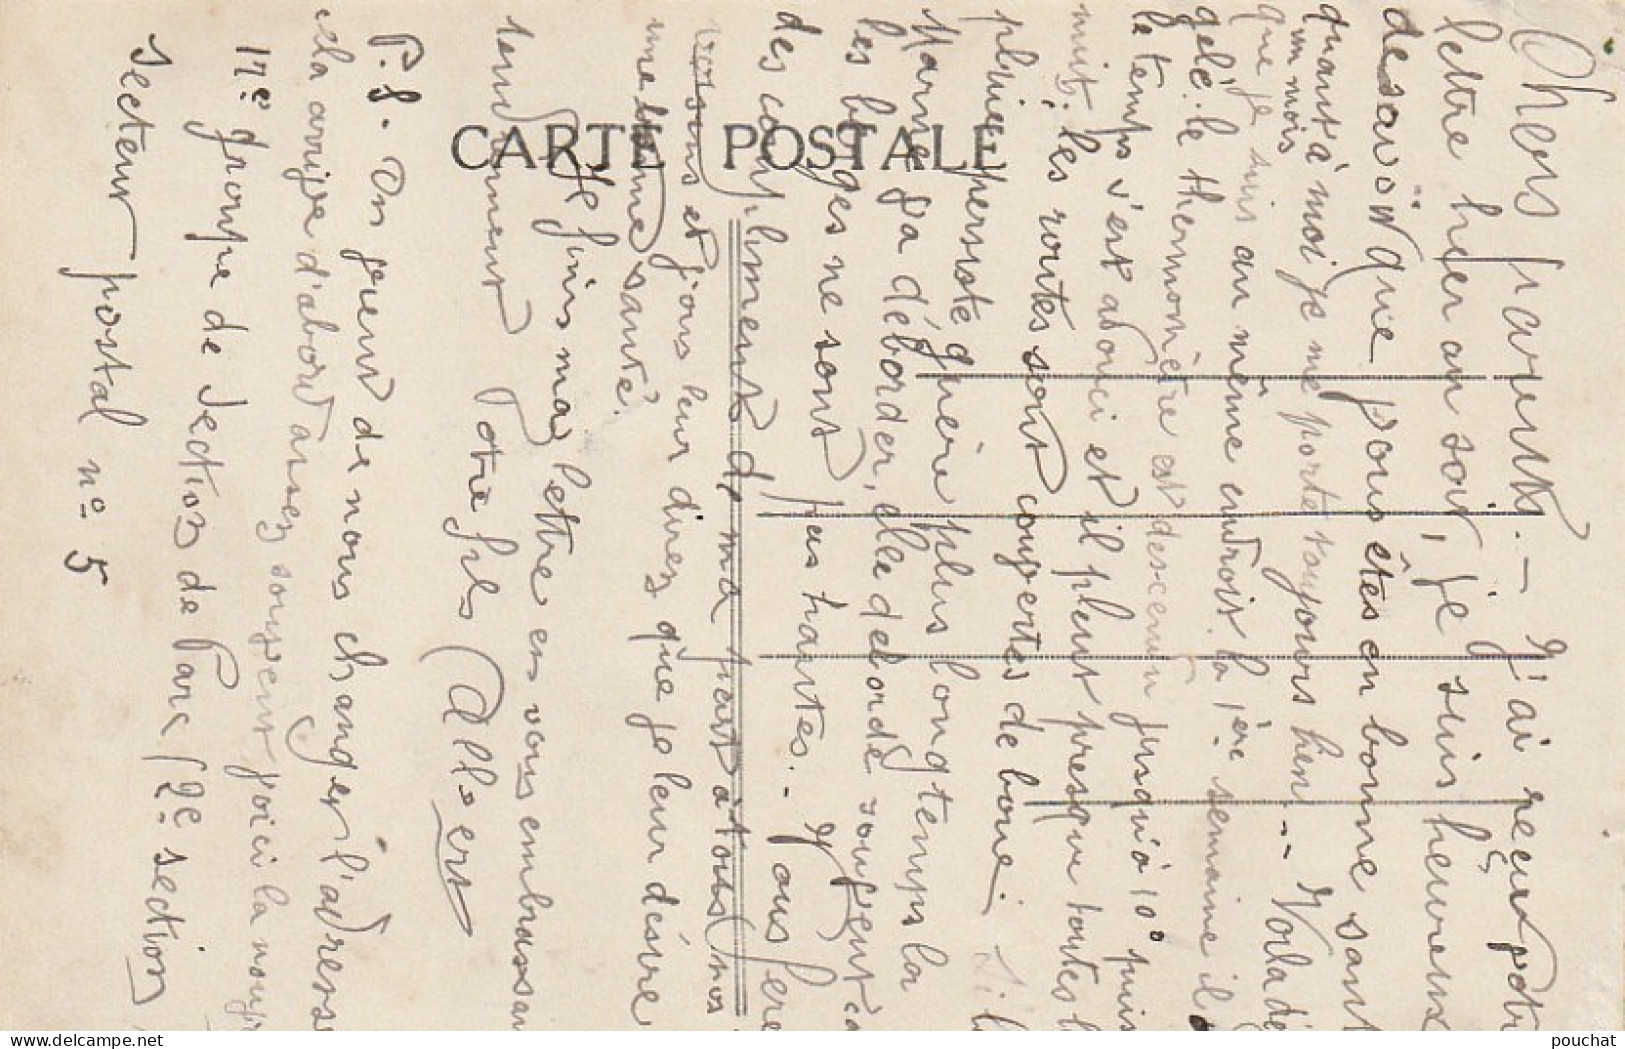 Chers parents. — J'ai reçu votre
lettre hier au soir, je suis heureux
de savoir que vous êtes en bonne santé
quant à moi je me porte toujours bien. — Voilà dé
un mois
que je suis au même endroit. la 1ère semaine il a
gelé. le thermomètre est descendu jusqu'à 10° puis
le temps s'est adouci et il pleut presque toutes l
nuit. les routes sont couvertes de boue. Si l
pluie persiste guère plus longtemps la
Marne va déborder, elle déborde souvent c
les berges ne sont pas hautes. - Vous fere
des compliments de ma part à tous nos
voisins et vous leur direz que je leur désire
une bonne santé.
Je finis ma lettre en vous embrassan
tendrement Votre fils Albert
P.S. On vient de nous changer l'adresse
cela arrive d'abord assez souvent voici la nouv
17e groupe de Section de Parc (2e section)
Secteur postal n° 5
CARTE POSTALE
pouchat